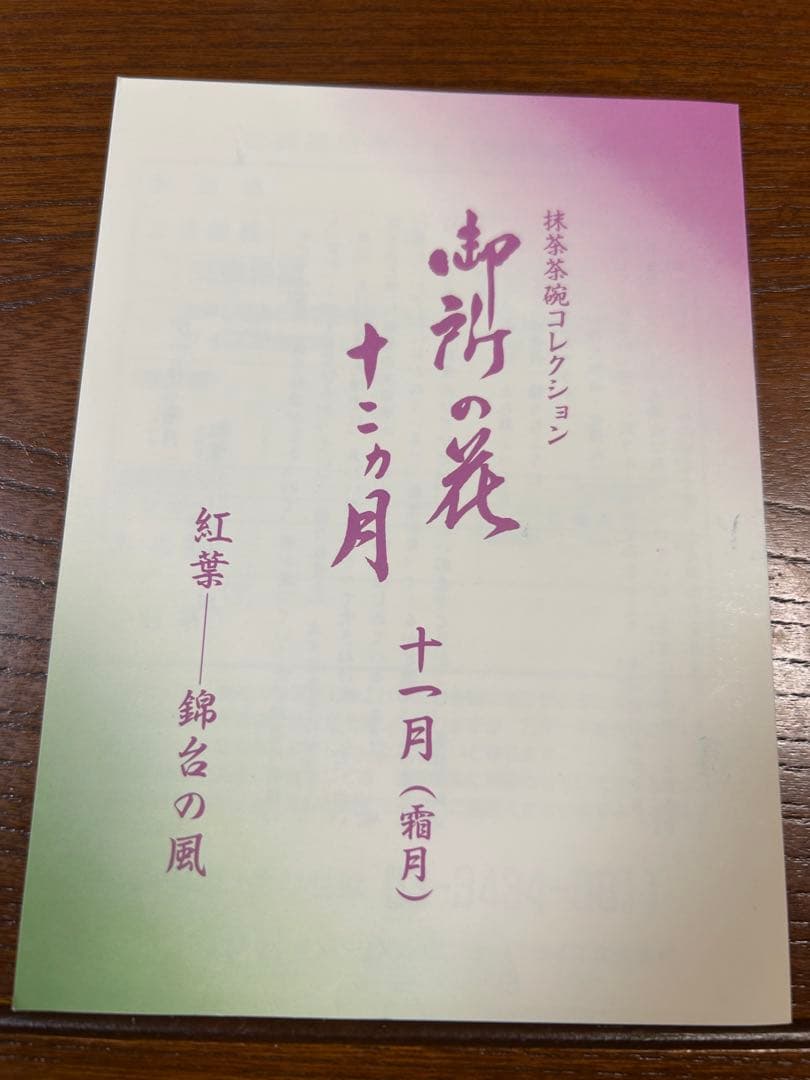 抹茶茶碗コレクション
御所の花
十二ヵ月
十一月(霜月)
紅葉――錦台の風